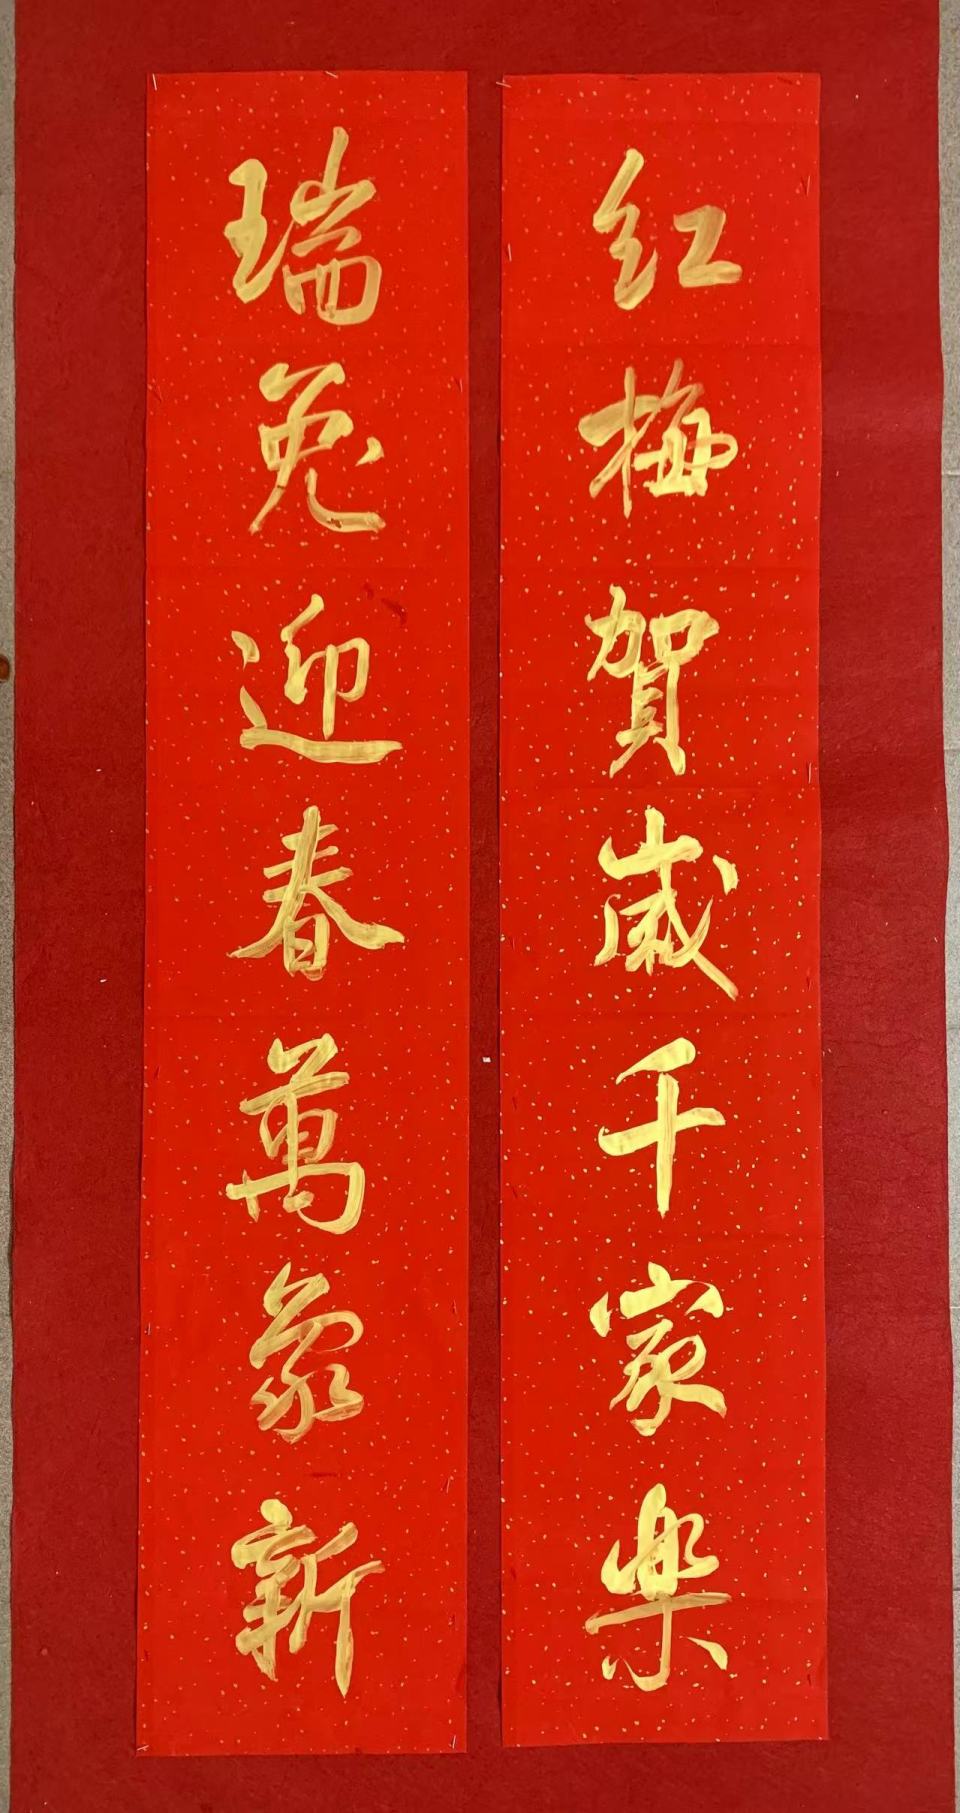 红梅賀歲千家樂
瑞兔迎春萬象新